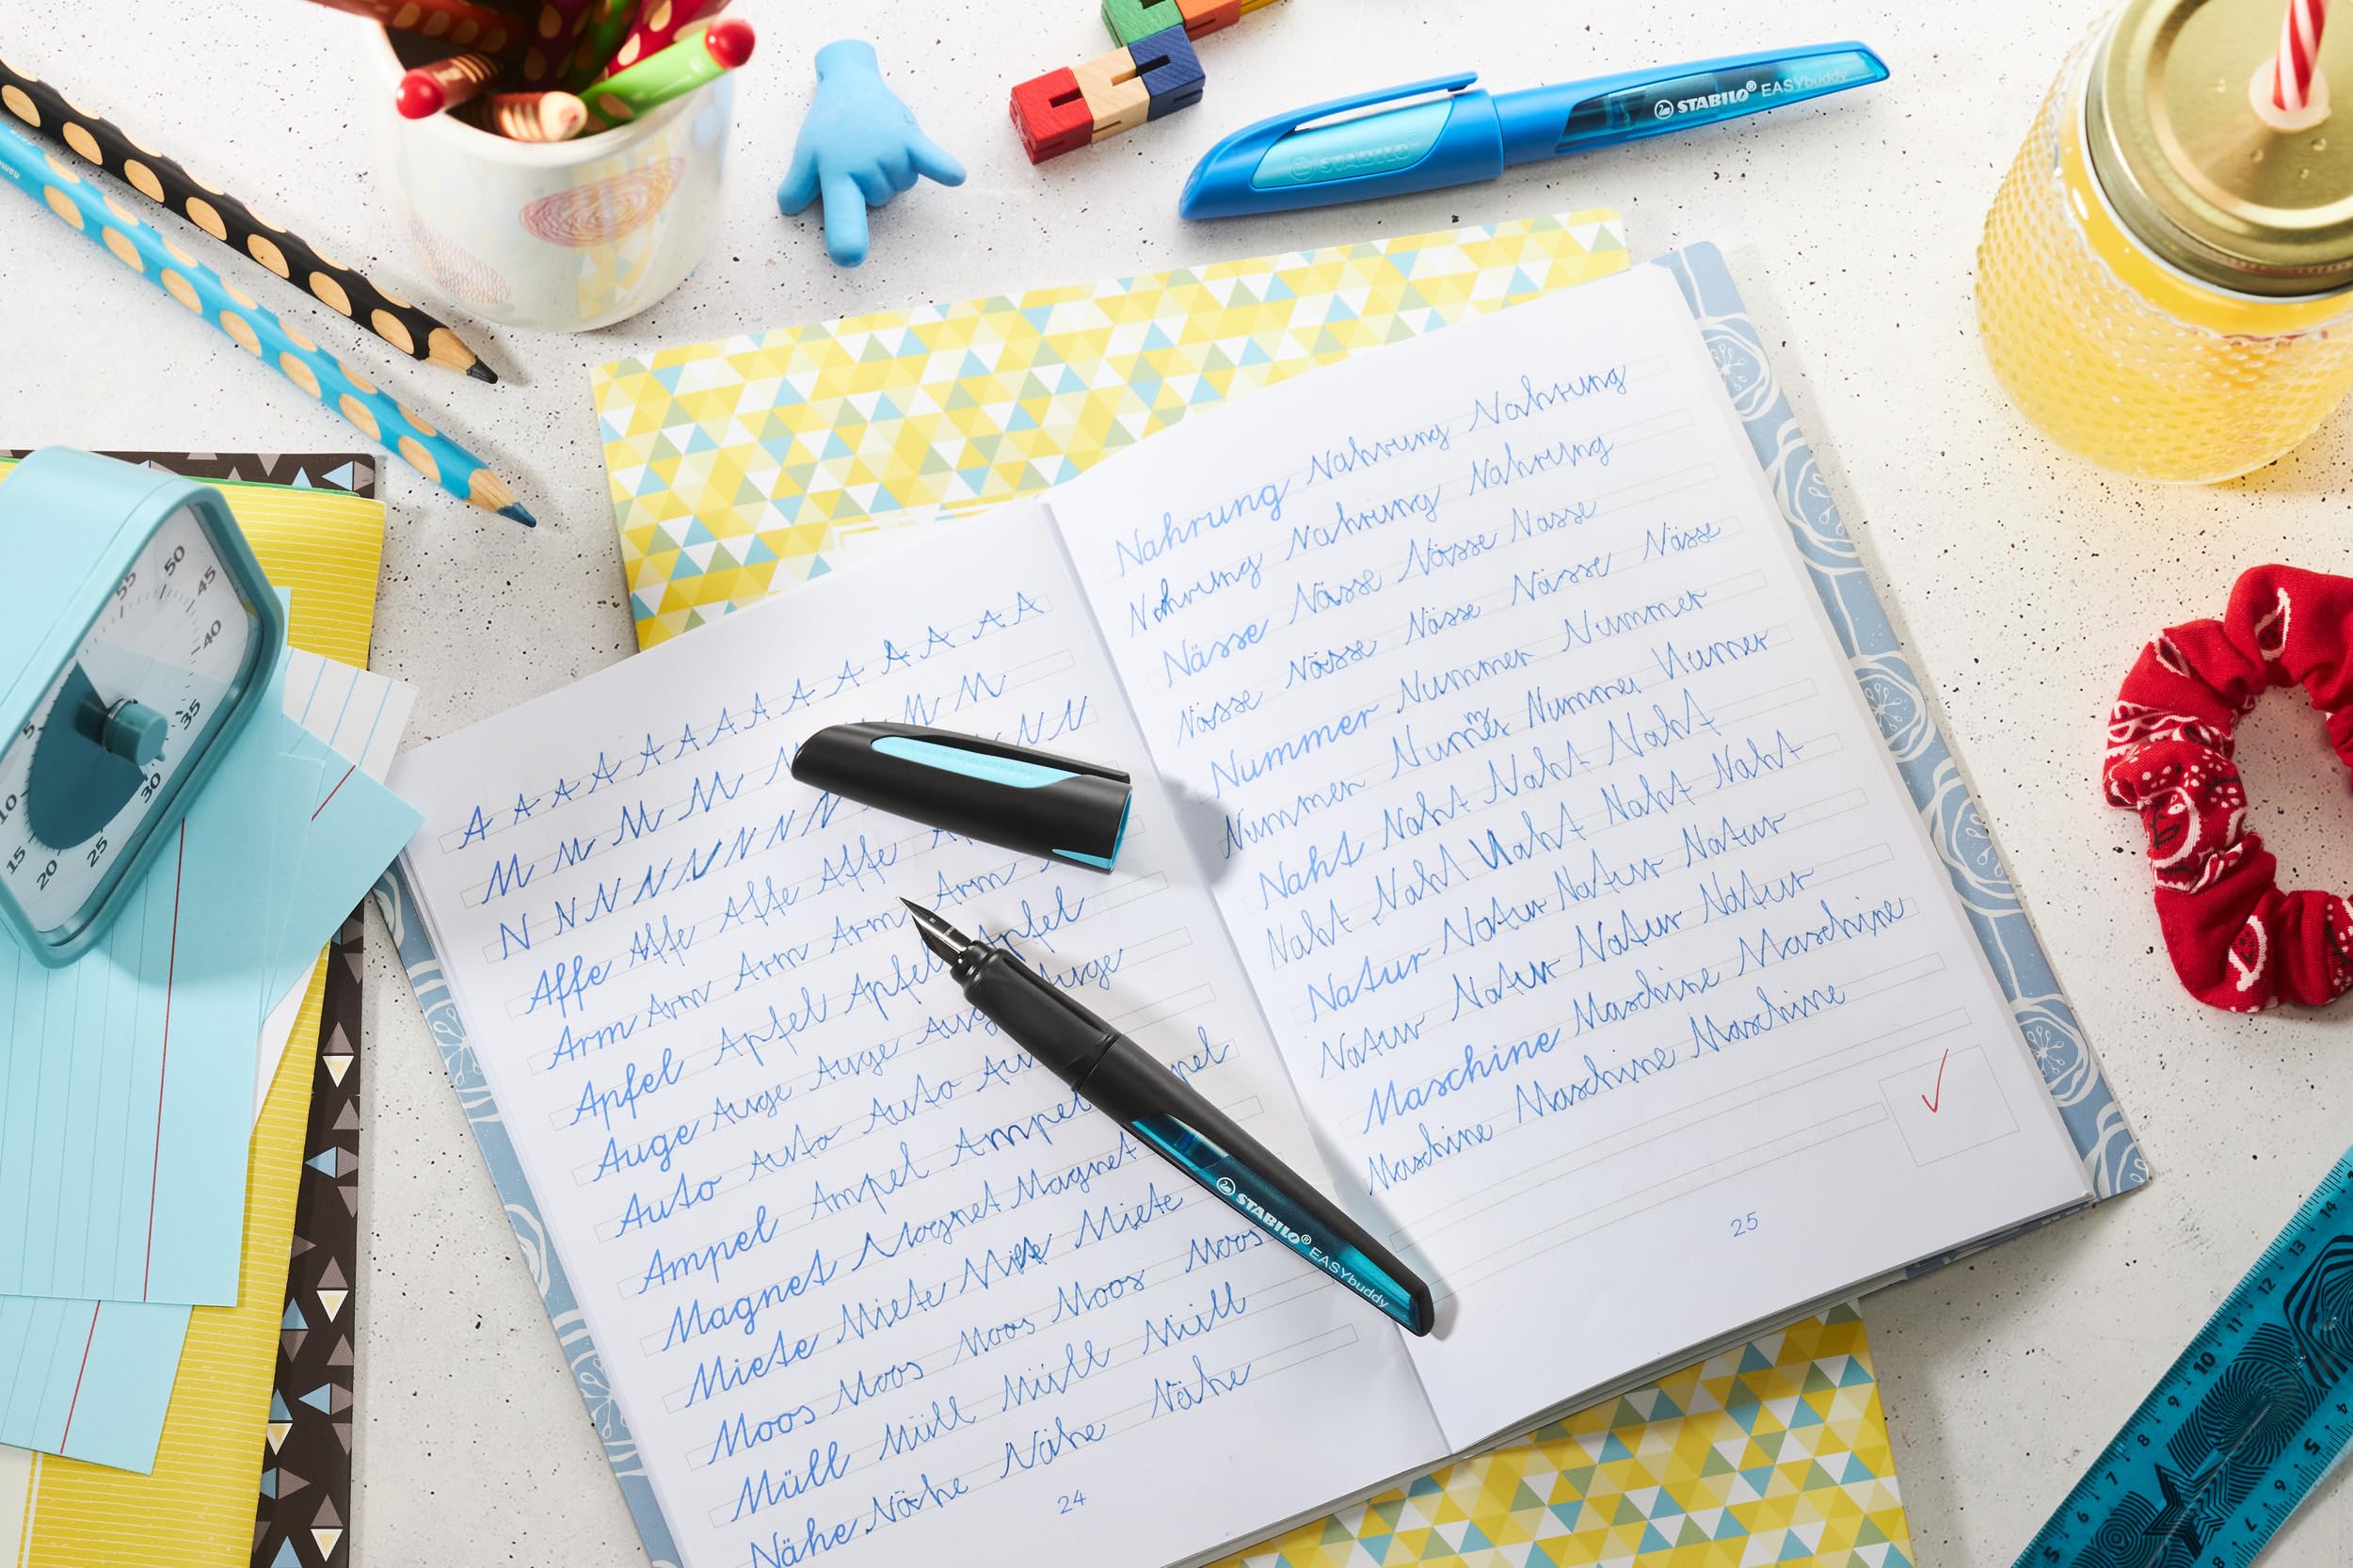 STABILO® EASYbuddy
STABILO®
A A A A A A A A A A A A
M M M M M M
N N N N N N N N N N N
Affe Affe Affe Affe
Arm Arm Arm Arm Arm
Apfel Apfel Apfel Apfel
Auge Auge Auge Auge Auge
Auto Auto Auto
Ampel Ampel Ampel
Magnet Magnet Magnet
Miete Miete Miete Miete
Moos Moos Moos Moos
Müll Müll Müll Müll
Nähe Nähe Nähe Nähe
24
Nahrung Nahrung Nahrung
Nahrung Nahrung Nahrung
Nässe Nässe Nässe Nässe
Nässe Nässe Nässe Nässe Nässe
Nummer Nummer Nummer
Nummer Numer m Nummer Numer
Naht Naht Naht Naht
Naht Naht Naht Naht Naht
Natur Natur Natur Natur
Natur Natur Natur Natur
Maschine Maschine Maschine
Maschine Maschine Maschine
25
STABILO® EASYbuddy
55 50 45 40 35 30 25 20 15 10 5
14 13 12 11 10 9 8 7 6 5
4 5 6 7